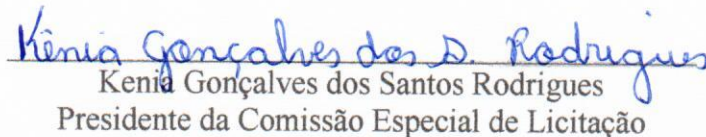 Kênia Gonçalves dos S. Rodrigues
Kenia Gonçalves dos Santos Rodrigues
Presidente da Comissão Especial de Licitação